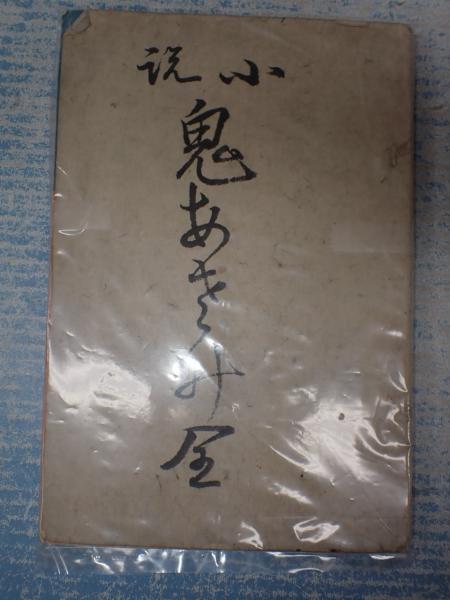 小説
鬼あざみ全